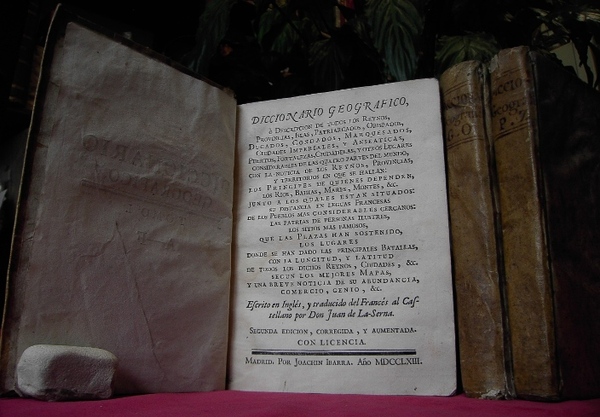 DICCIONARIO GEOGRAFICO,
ò DESCRIPCION DE TODOS LOS REYNOS,
PROVINCIAS, ISLAS, PATRIARCADOS, OBISPADOS,
DUCADOS, CONDADOS, MARQUESADOS,
CIUDADES IMPERIALES, Y ANSEATICAS,
PUERTOS, FORTALEZAS, CIUDADELAS, Y OTROS LUGARES
CONSIDERABLES DE LAS QUATRO PARTES DEL MUNDO,
CON LA NOTICIA DE LOS REYNOS, PROVINCIAS,
Y TERRITORIOS EN QUE SE HALLAN:
LOS PRINCIPES DE QUIENES DEPENDEN,
LOS RIOS, BAHIAS, MARES, MONTES, &c.
JUNTO A LOS QUALES ESTAN SITUADOS:
SU DISTANCIA EN LEGUAS FRANCESAS
DE LOS PUEBLOS MAS CONSIDERABLES CERCANOS:
LAS PATRIAS DE PERSONAS ILUSTRES,
LOS SITIOS MAS FAMOSOS,
QUE LAS PLAZAS HAN SOSTENIDO,
LOS LUGARES
DONDE SE HAN DADO LAS PRINCIPALES BATALLAS,
CON LA LONGITUD, Y LATITUD
DE TODOS LOS DICHOS REYNOS, CIUDADES, &c.
SEGUN LOS MEJORES MAPAS,
Y UNA BREVE NOTICIA DE SU ABUNDANCIA,
COMERCIO, GENIO, &c.
Escrito en Inglés, y traducido del Francés al Cas-
tellano por Don Juan de La-Serna.
SEGUNDA EDICION, CORREGIDA, Y AUMENTADA.
CON LICENCIA.
MADRID. POR JOACHIN IBARRA. Año MDCCLXIII.